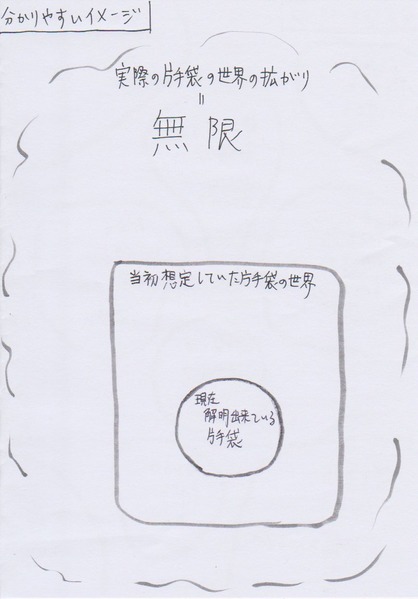 分かりやすいイメージ
実際の片手袋の世界の拡がり
=
無限
当初想定していた片手袋の世界
現在
解明出来ている
片手袋